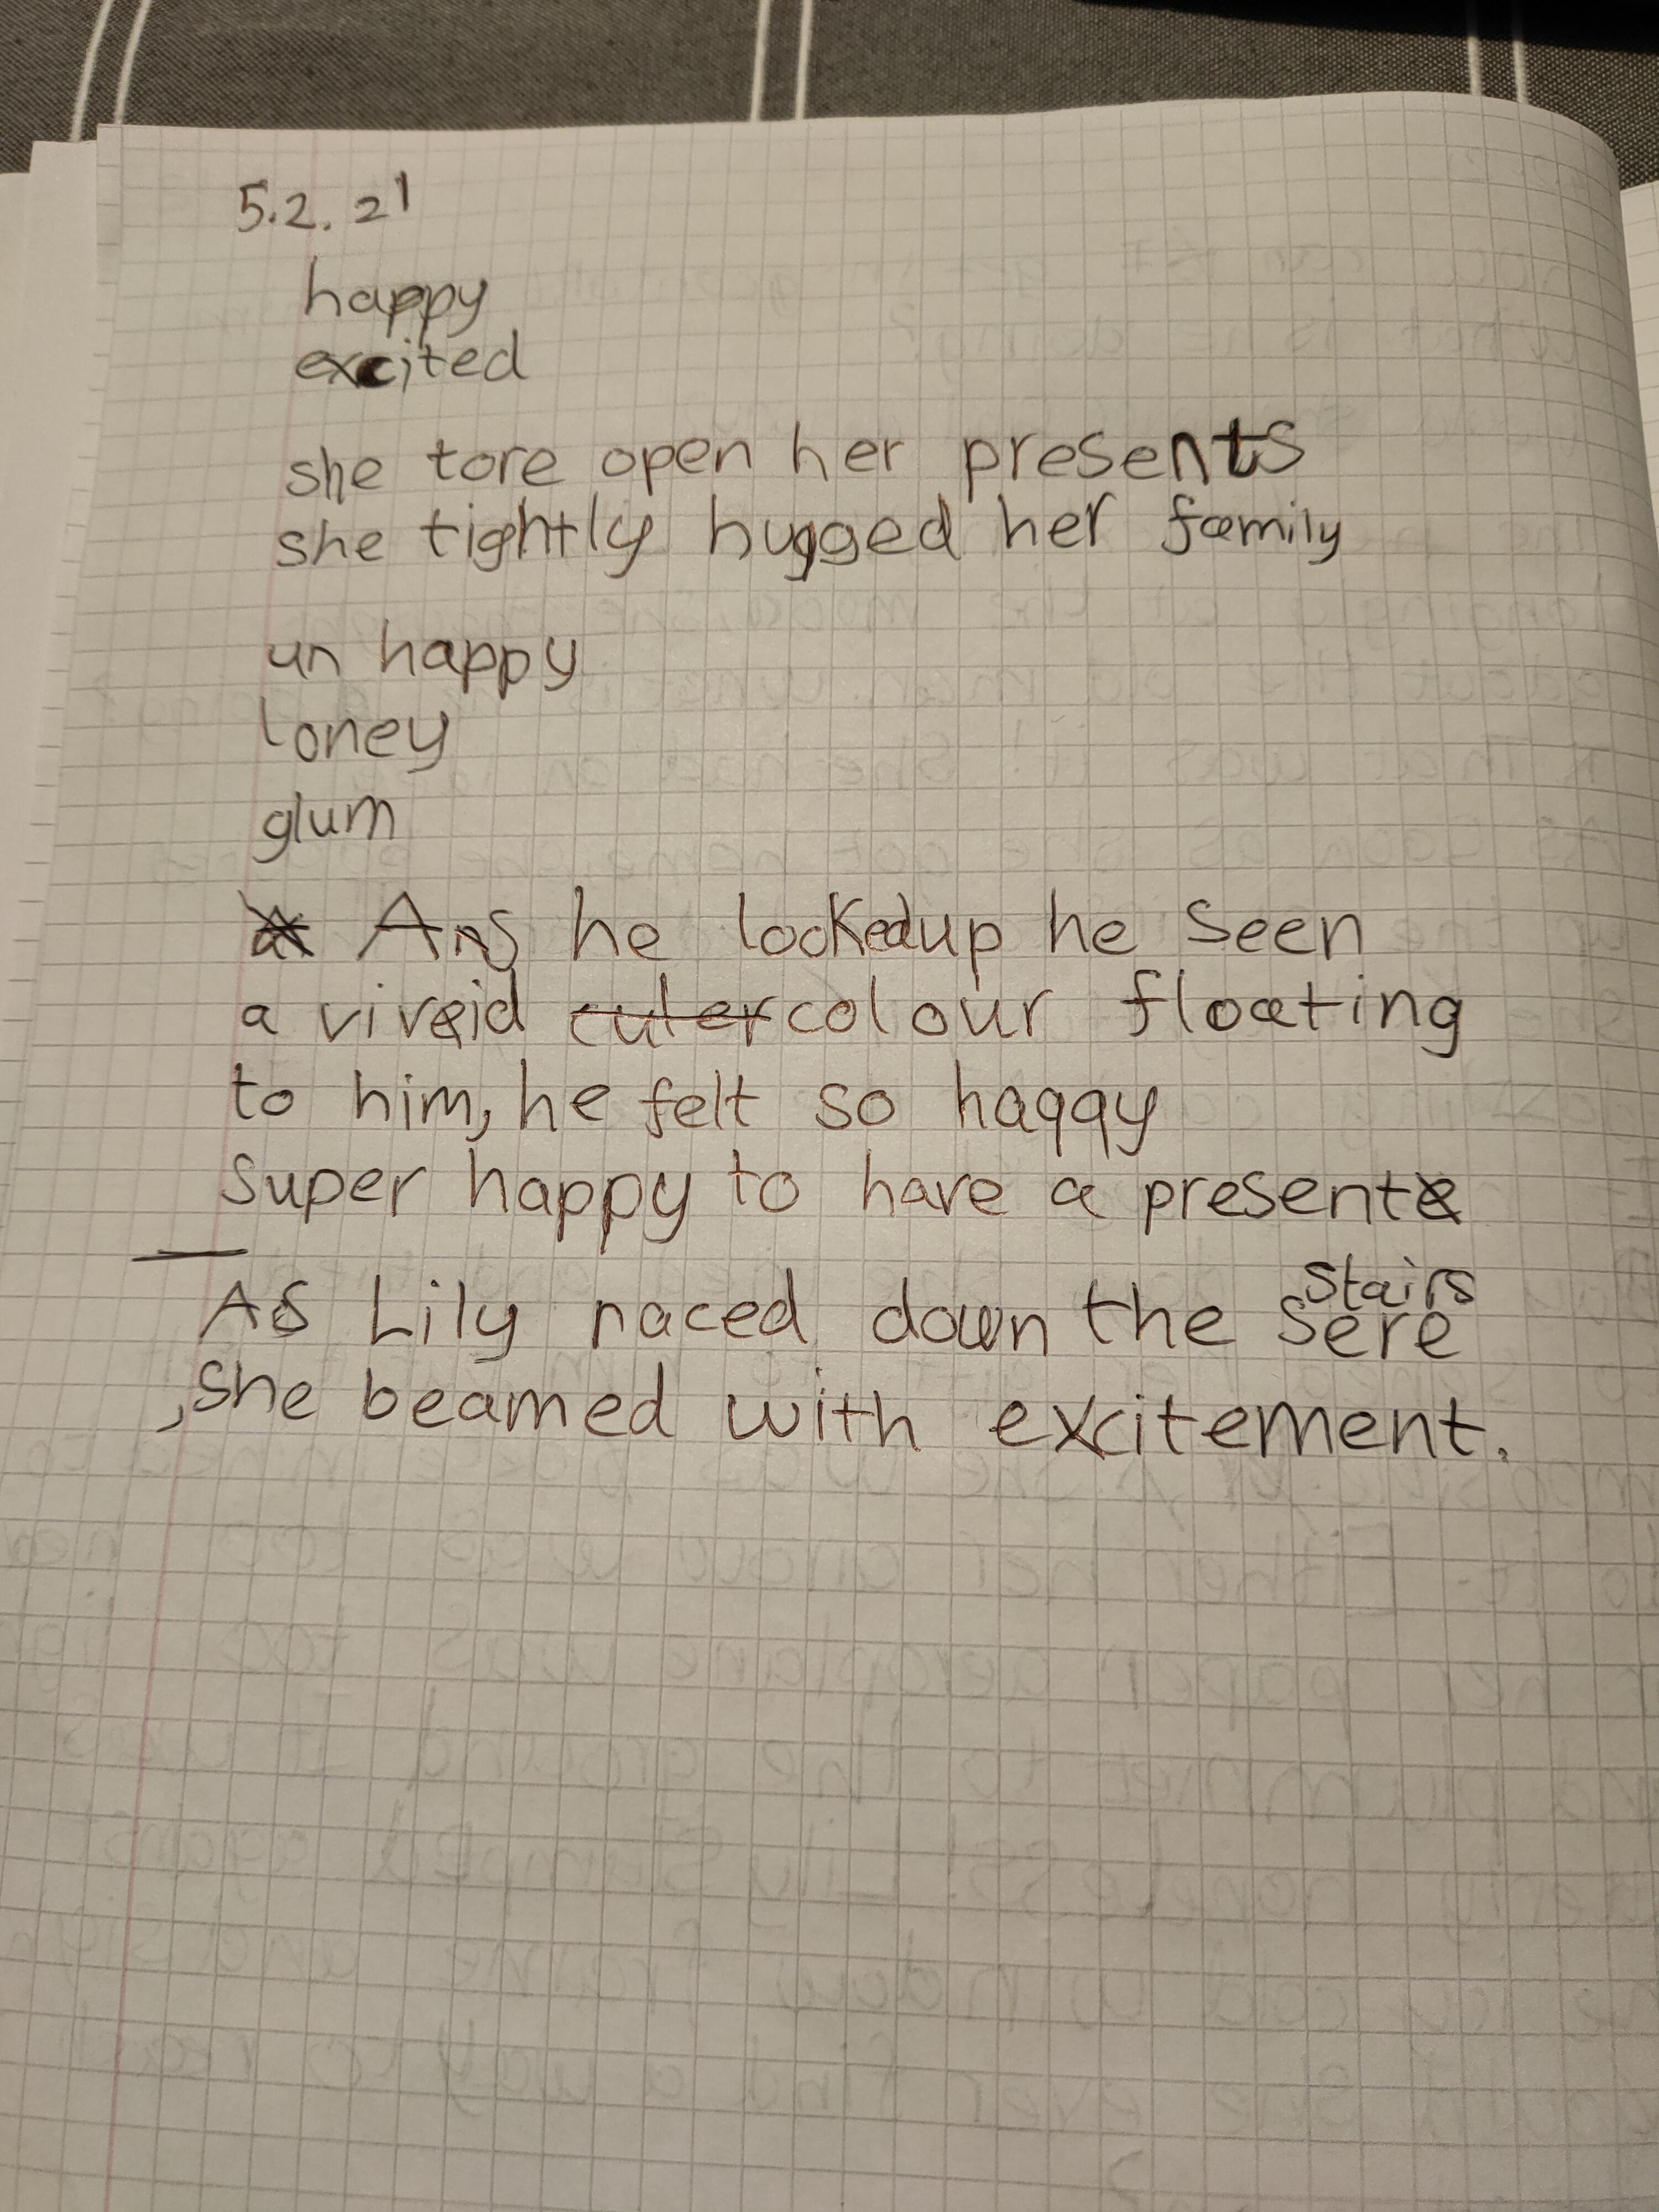 5.2.21
happy
excited
she tore open her presents
she tightly hugged her family
un happy
loney
glum
As he looked up he seen
a vivid colour floating
to him, he felt so haqqy
super happy to have a present
As Lily raced down the stairs
sere
, she beamed with excitement.